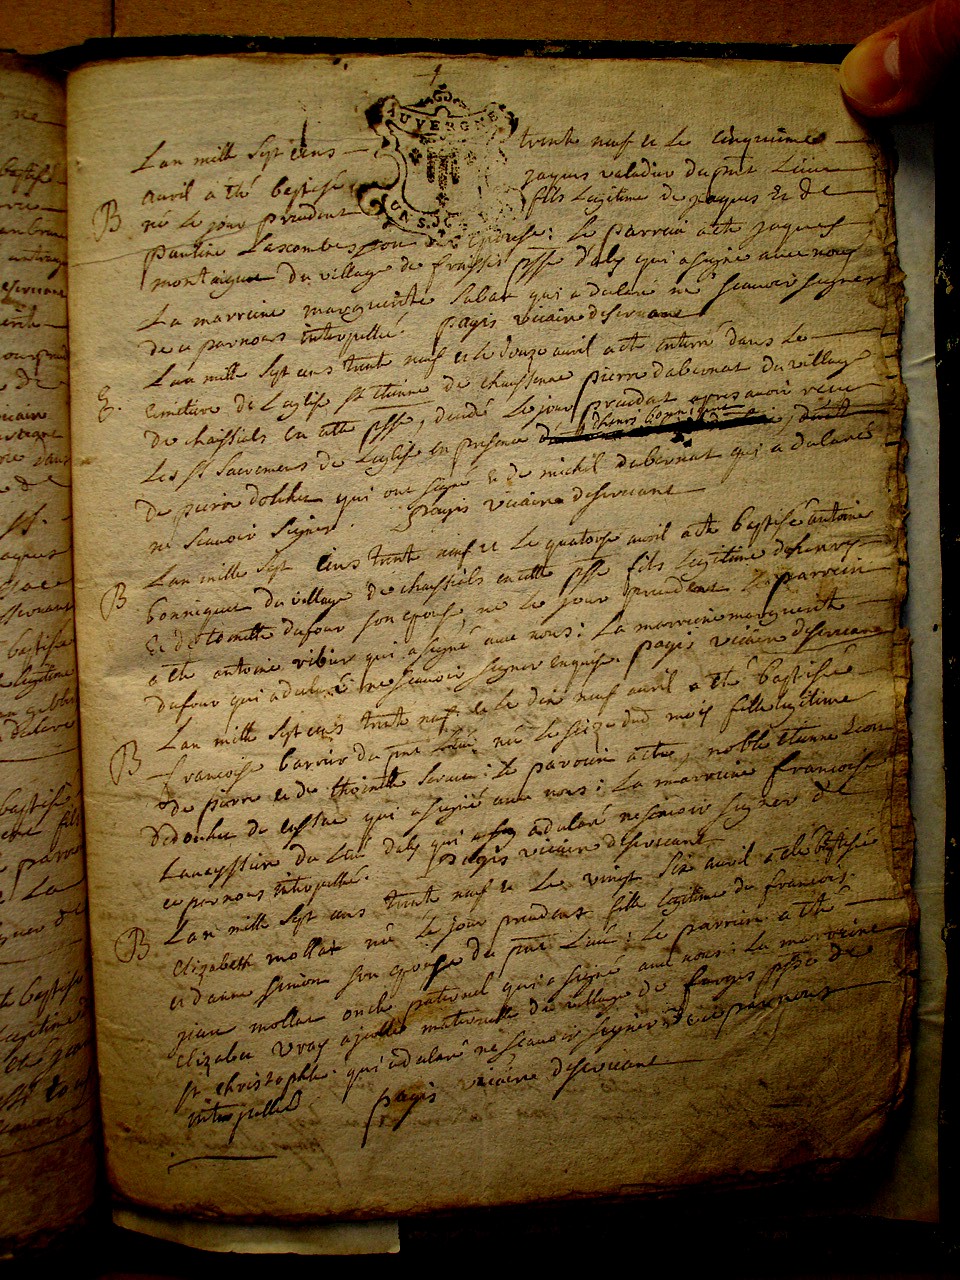 AUVERGNE
UN S.
Lan mille Sept cens trente neuf et Le cinquieme
avril a été baptisé jaques valadier du pnt Lieu
B né Le jour precedent fils Legitime de jaques Et de
pauline Lascombes son epouse: Le parrein a eté jaques
montaigue du village de fraissis psse d'aly qui a signé avec nous
La marreine marguerite Sabat qui a declaré ne scavoir signer
de ce par nous interpellé. pagis vicaire deservant
Lan mille Sept cens trente neuf et Le douze avril a eté enterré dans Le
E. Cemetiere de Leglise St etienne de chaussenne pierre dabernat du village
de chaissiels en cette psse, decedé Le jour precedent apres avoir receu
Les St Sacremens de Leglise en presence
de pierre qui ont signé et de michel dabernat qui a declaré
ne scavoir signer. pagis vicaire deservant
Lan mille Sept cens trente neuf et Le quatorze avril a eté baptisé antoine
B bonniquet du village de chaissiels en cette psse fils Legitime de
Et de toinette dufour son epouse, né Le jour precedent Le parrein
a eté antoine vibier qui a signé avec nous: La marreine marguerite
dufour qui a declaré ne scavoir signer enquise. pagis vicaire deservant
Lan mille Sept cens trente neuf et Le dix neuf avril a eté baptisée
B francoise barrier du pnt Lieu née Le seize dud mois fille Legitime
de pierre et de thoinette : Le parrein a eté noble etienne Leon
de qui a signé avec nous: La marreine francoise
du Lieu daly qui a declaré ne scavoir signer de
ce par nous interpellé. pagis vicaire deservant
Lan mille Sept cens trente neuf et Le vingt six avril a eté baptisée
B Elizabeth mollat née Le jour precedent fille Legitime de francois
et danne simon son epouse du pnt Lieu: Le parrein a eté
jean mollat oncle paternel qui a signé avec nous: La marreine
Elizabet vray ayeulle maternelle du village de farges psse de
St christophle. qui a declaré ne scavoir signer de ce par nous
interpellée pagis vicaire deservant